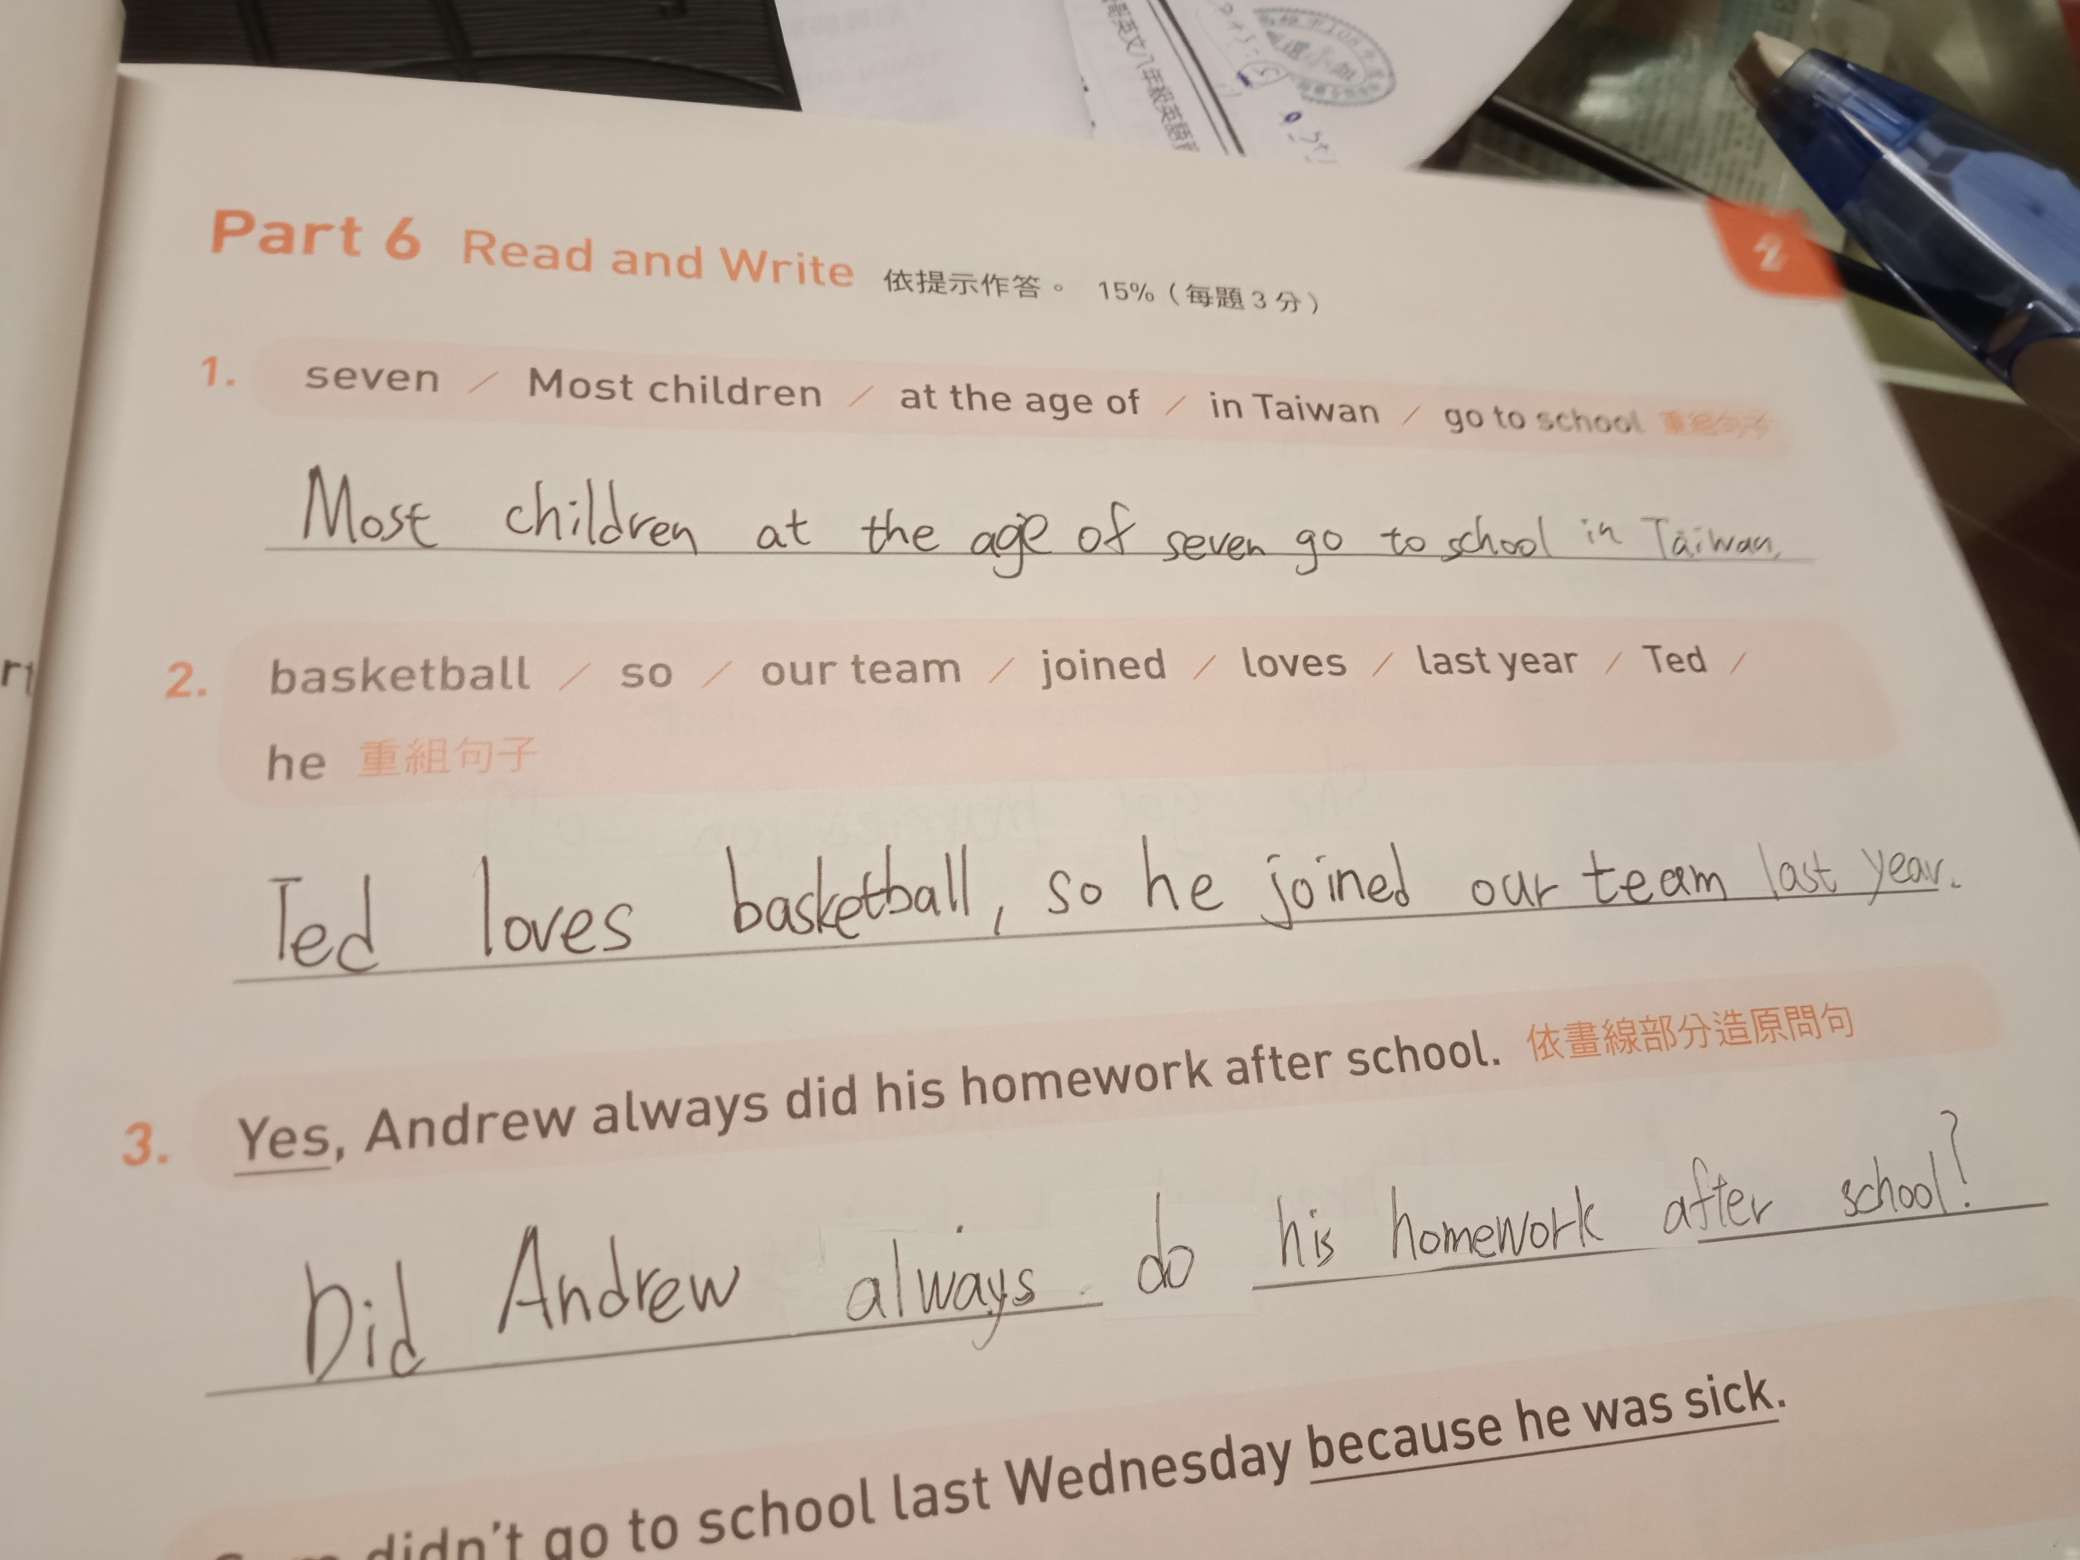 哥英文八年級英語
2
Part 6 Read and Write 依提示作答。 15%（每題3分）
1. seven / Most children / at the age of / in Taiwan / go to school 重組句子
Most children at the age of seven go to school in Taiwan.
2. basketball / so / our team / joined / loves / last year / Ted /
he 重組句子
Ted loves basketball, so he joined our team last year.
3. Yes, Andrew always did his homework after school. 依畫線部分造原問句
Did Andrew always do his homework after school?
didn't go to school last Wednesday because he was sick.